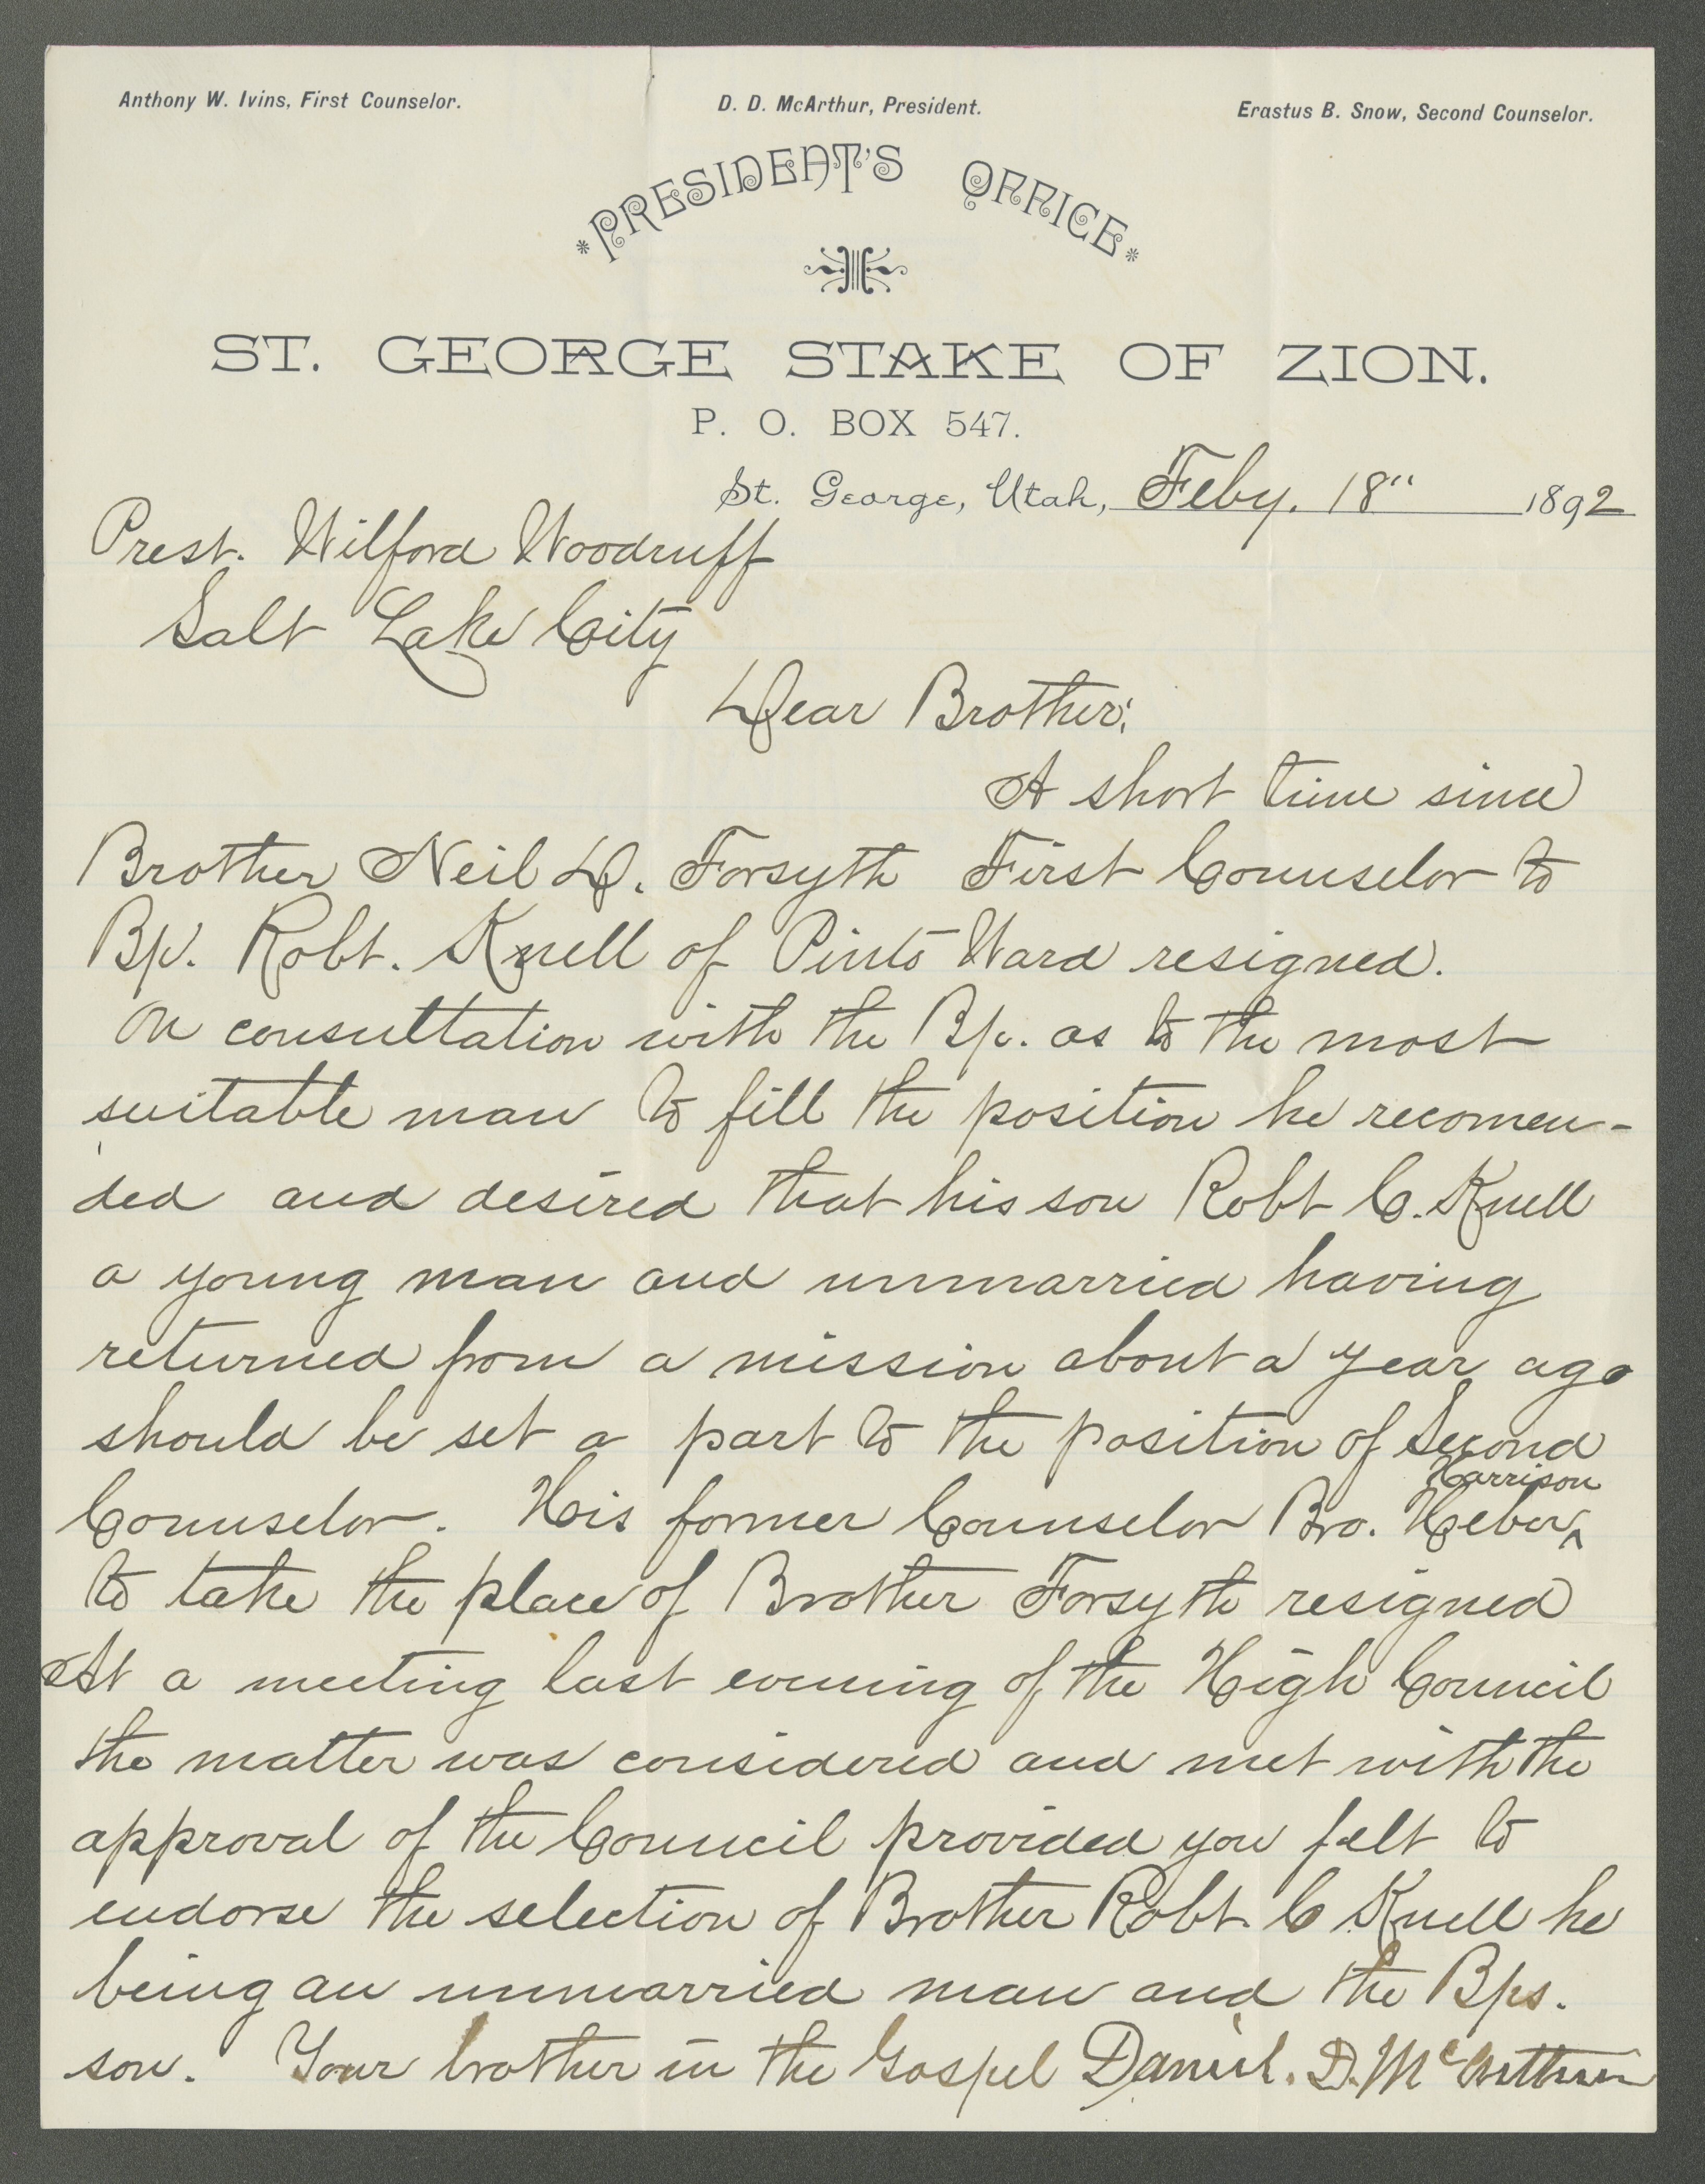 Anthony W. Ivins, First Counselor. D. D. McArthur, President. Erastus B. Snow, Second Counselor.
PRESIDENT'S OFFICE
ST. GEORGE STAKE OF ZION.
P. O. BOX 547.
St. George, Utah, Feby. 18" 1892
Prest. Wilford Woodruff
Salt Lake City
Dear Brother:
A short time since
Brother Neil D. Forsyth First Counselor to
Bp. Robt. Knell of Pinto Ward resigned.
On consultation with the Bp. as to the most
suitable man to fill the position he recomen-
ded and desired that his son Robt C. Knell
a young man and unmarried having
returned from a mission about a year ago
should be set a part to the position of Second
Counselor. His former Counselor Bro. Heber ^ Harrison
to take the place of Brother Forsyth resigned
At a meeting last evening of the High Council
the matter was considered and met with the
approval of the Council provided you felt to
endorse the selection of Brother Robt. C Knell he
being an unmarried man and the Bps.
son. Your brother in the Gospel Daniel. D. McArthur